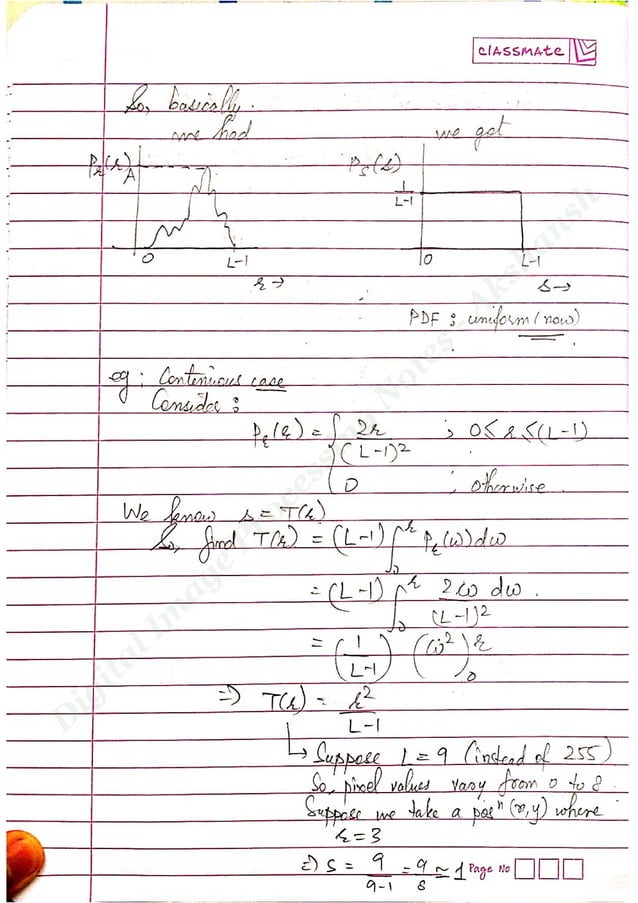 classmate
So, basically.
we had
we got
Pr(r)
A
0
L-1
r→
Ps(s)
1/(L-1)
0
L-1
s→
PDF : uniform (now)
eg : Contenious case
Consider :
Pr(r) = { 2r/(L-1)² ; 0 ≤ r ≤ (L-1)
0 ; otherwise.
We know s = T(r)
So, find T(r) = (L-1) ∫₀ʳ Pr(ω)dω
= (L-1) ∫₀ʳ 2ω dω/(L-1)².
= (1/(L-1)) (ω²)₀ʳ
=) T(r) = r²/(L-1)
↳ Suppose L = 9 (instead of 255)
So, pixel values vary from 0 to 8
Suppose we take a posⁿ (x,y) where
r = 3
=) S = 9/(9-1) = 9/8 ≃ 1
Page No
Digital Image Processing Notes - Akshansh